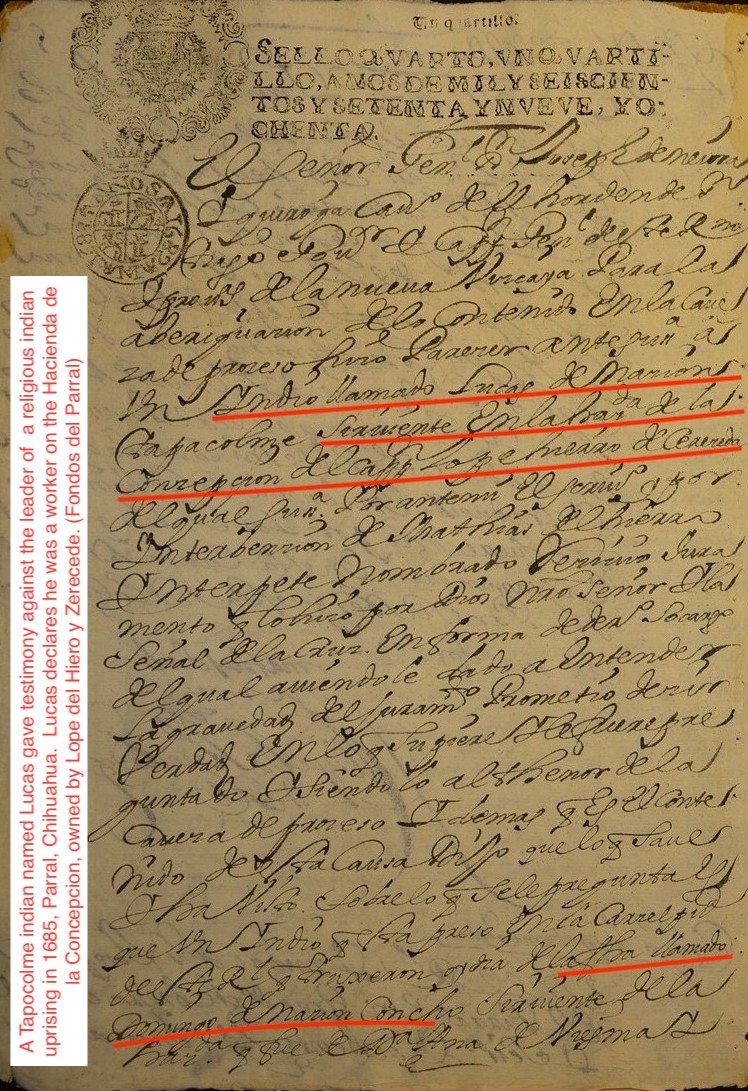 Un quartillo.
SELLO QVARTO, VNO QVARTI-
LLO, AÑOS DE MIL Y SEISCIEN-
TOS Y SETENTA Y NVEVE, Y O-
CHENTA.
El Señor Gen.l D.n Joseph de neira
y quiroga Cau.o de el horden de
Sntiago Gou.or y Capp. Gen.l de este R.no
y prou.s de la nueua Vizcaya Para la
aberiguazion de lo Contenido En la Caue
za de proseso hizo Parezer ante su s.a a
Un Indio llamado Lucas de Nazion
tapacolme siruiente En la haz.da de la
Conzepcion del capp.n Lope hierro de Cereceda
del qual su s.a Por ante mi El scriu.o y por
Interbenzion de Mathias de hierro
Interpete Nombrado Rerziuio Jura
mento q lo hizo por Dios Nro Señor y la
Señal de la Cruz. En forma de der.o so cargo
del qual auiendole dado a Entender
la grauedad del juram.to Prometio dezir
Verdad En lo q supiere y le fuere pre
guntado y siendolo al thenor de la
Cauesa de proseso y demas q Es El Conte
nido de esta Causa Dijo que lo q saue
y ha visto sobre lo q se le pregunta Es
que Un Indio q esta preso En la Carzel
de este R.l q trujeron oy dia de la fha llamado
Domingo de Nazion Concho siruiente de la
haz.da q fue de D.a Ana de
A Tapocolme indian named Lucas gave testimony against the leader of a religious indian
uprising in 1685, Parral, Chihuahua. Lucas declares he was a worker on the Hacienda de
la Concepcion, owned by Lope del Hiero y Zerecede. (Fondos del Parral)